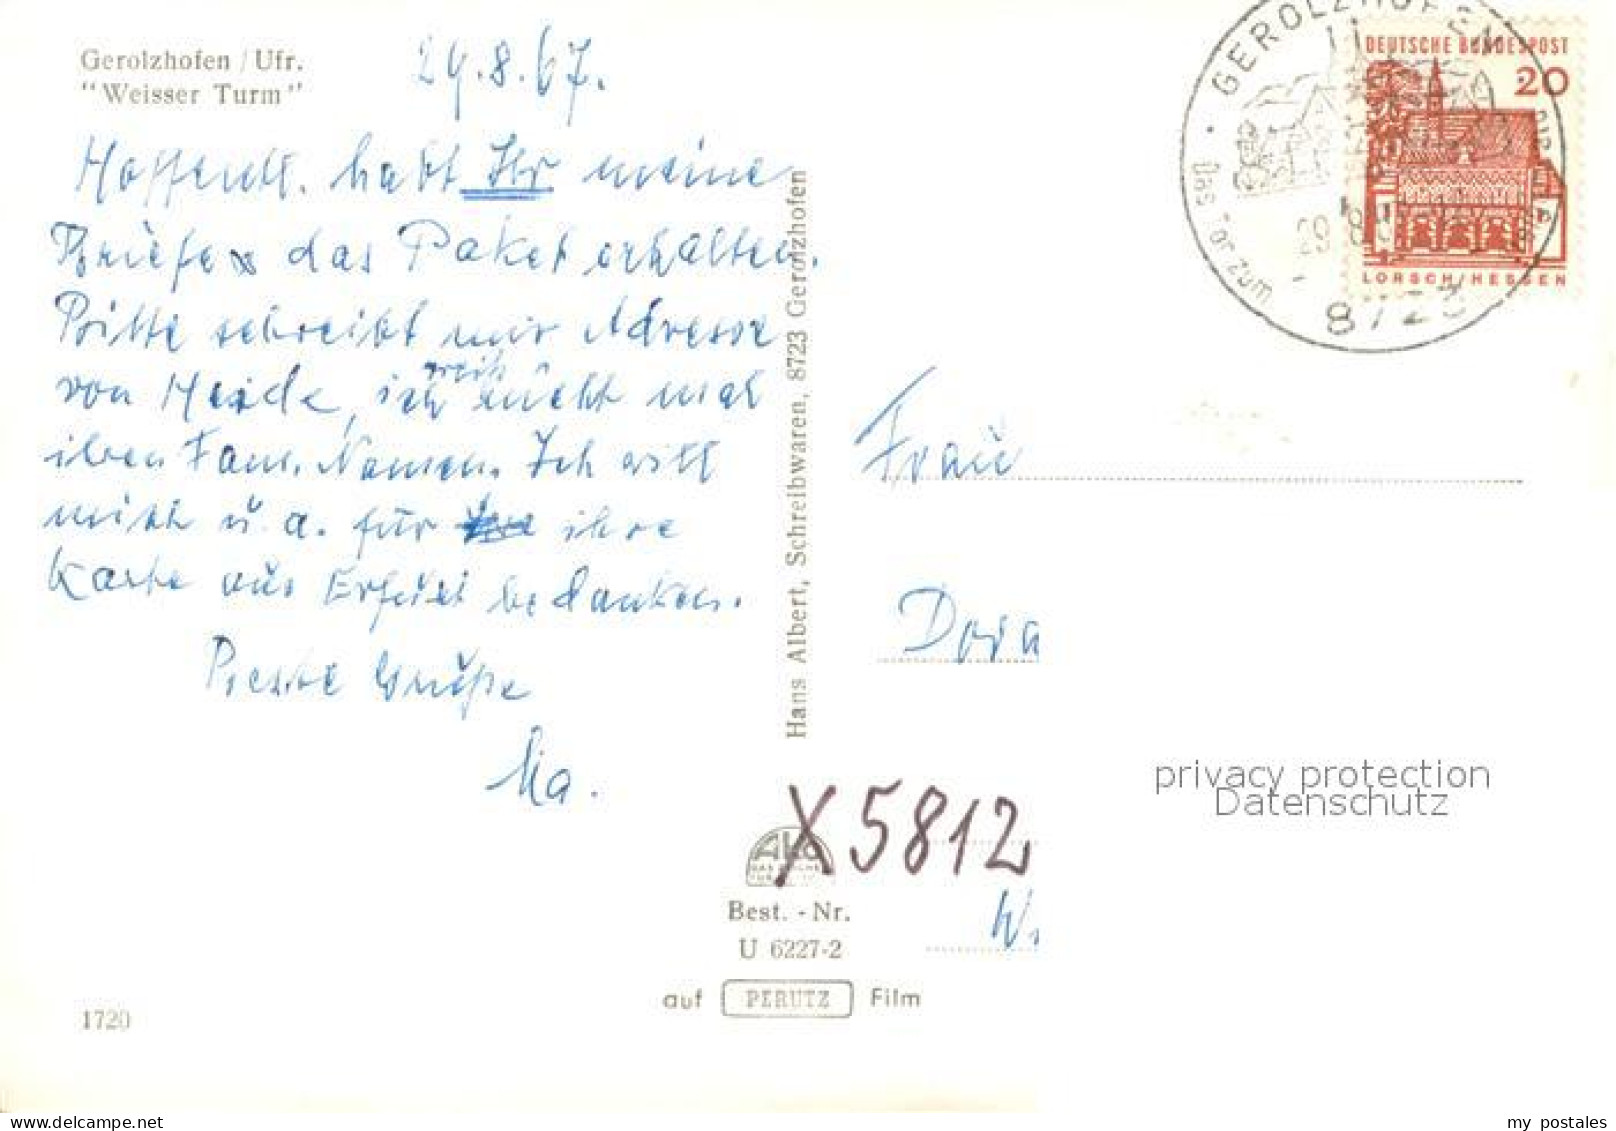 Gerolzhofen / Ufr.
"Weisser Turm"
29.8.67.
Hoffentl. habt Ihr meine
Briefe & das Paket erhalten.
Bitte schreibt mir Adresse
von Heide, ich weiß nicht mal
ihren Fam. Namen. Ich will
mich u. a. für ihre
Karte aus Erfurt bedanken.
Beste Grüße
Ma.
Hans Albert, Schreibwaren, 8723 Gerolzhofen
GEROLZHOFEN
Das Tor zum
8723
DEUTSCHE BUNDESPOST
20
LORSCH/HESSEN
Frau
Dora
privacy protection
Datenschutz
X 5812
W.
Best. - Nr.
U 6227-2
auf PERUTZ Film
1720
my postales